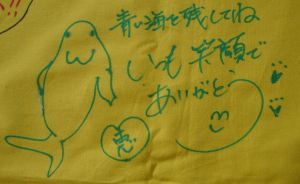 青い海を残してね
いつも笑顔で
ありがとう
恵